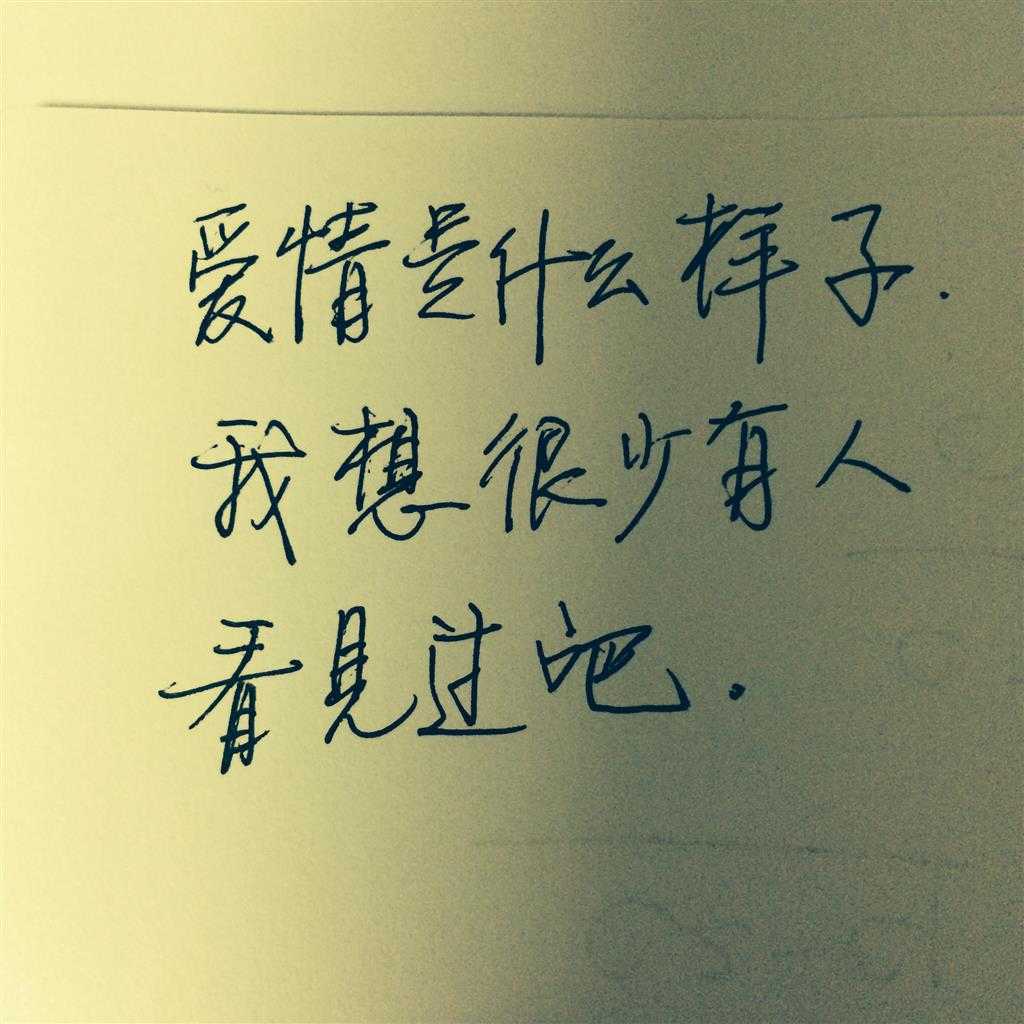 爱情是什么样子.
我想很少有人
看见过吧.